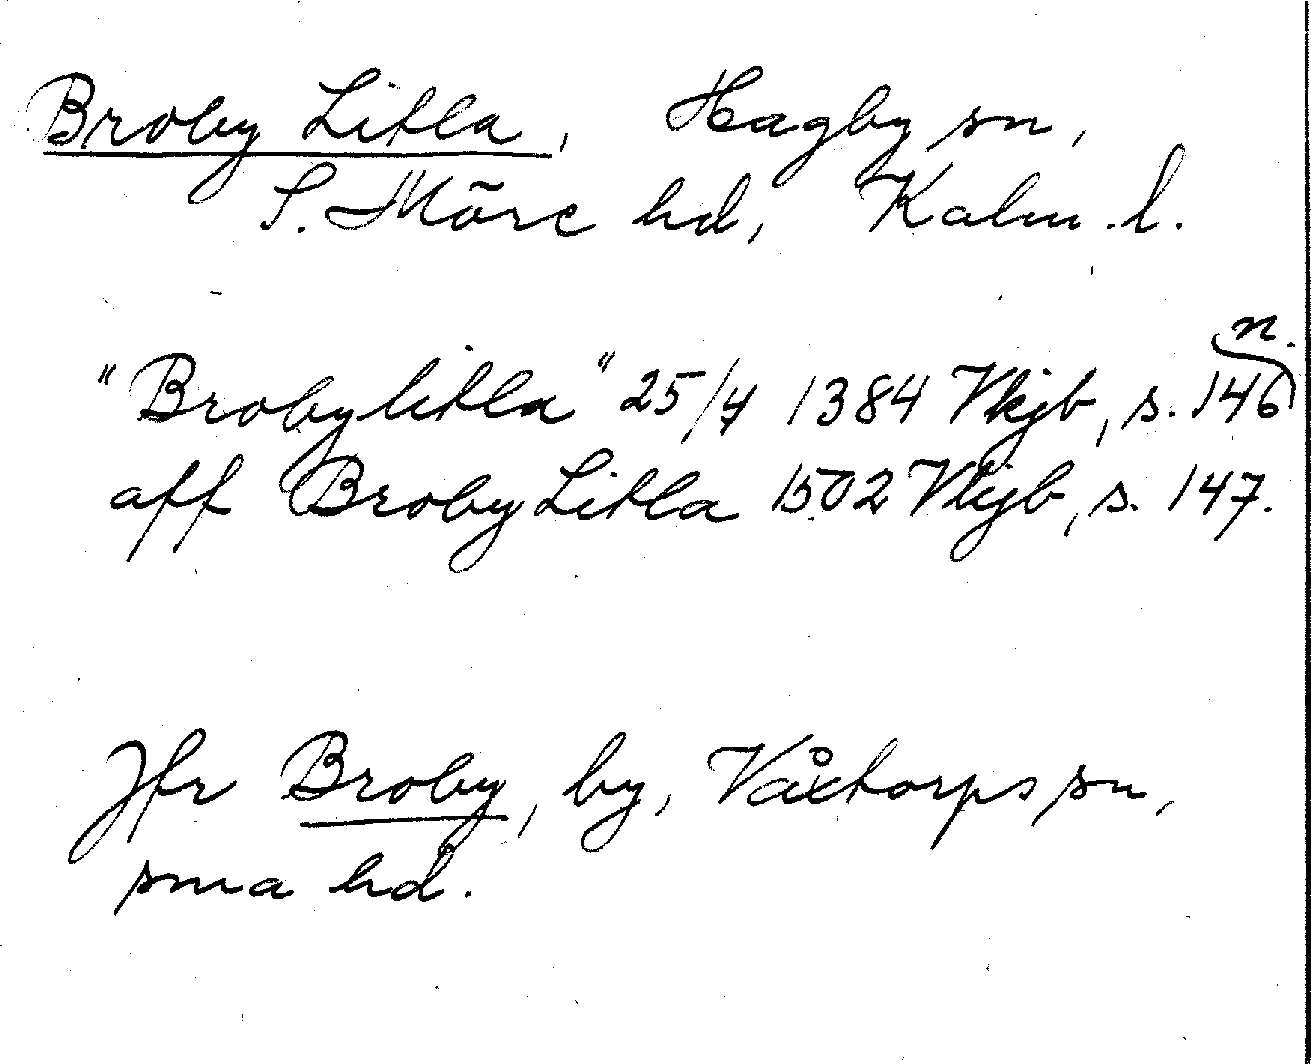 Broby Litla, Hagby sn,
S. Möre hd, Kalm. l.
"Brobylitla" 25/4 1384 Vkjb, s. 146 n.
aff Broby Litla 1502 Vkjb, s. 147.
Jfr Broby, by, Våxtorps sn,
sma hd.